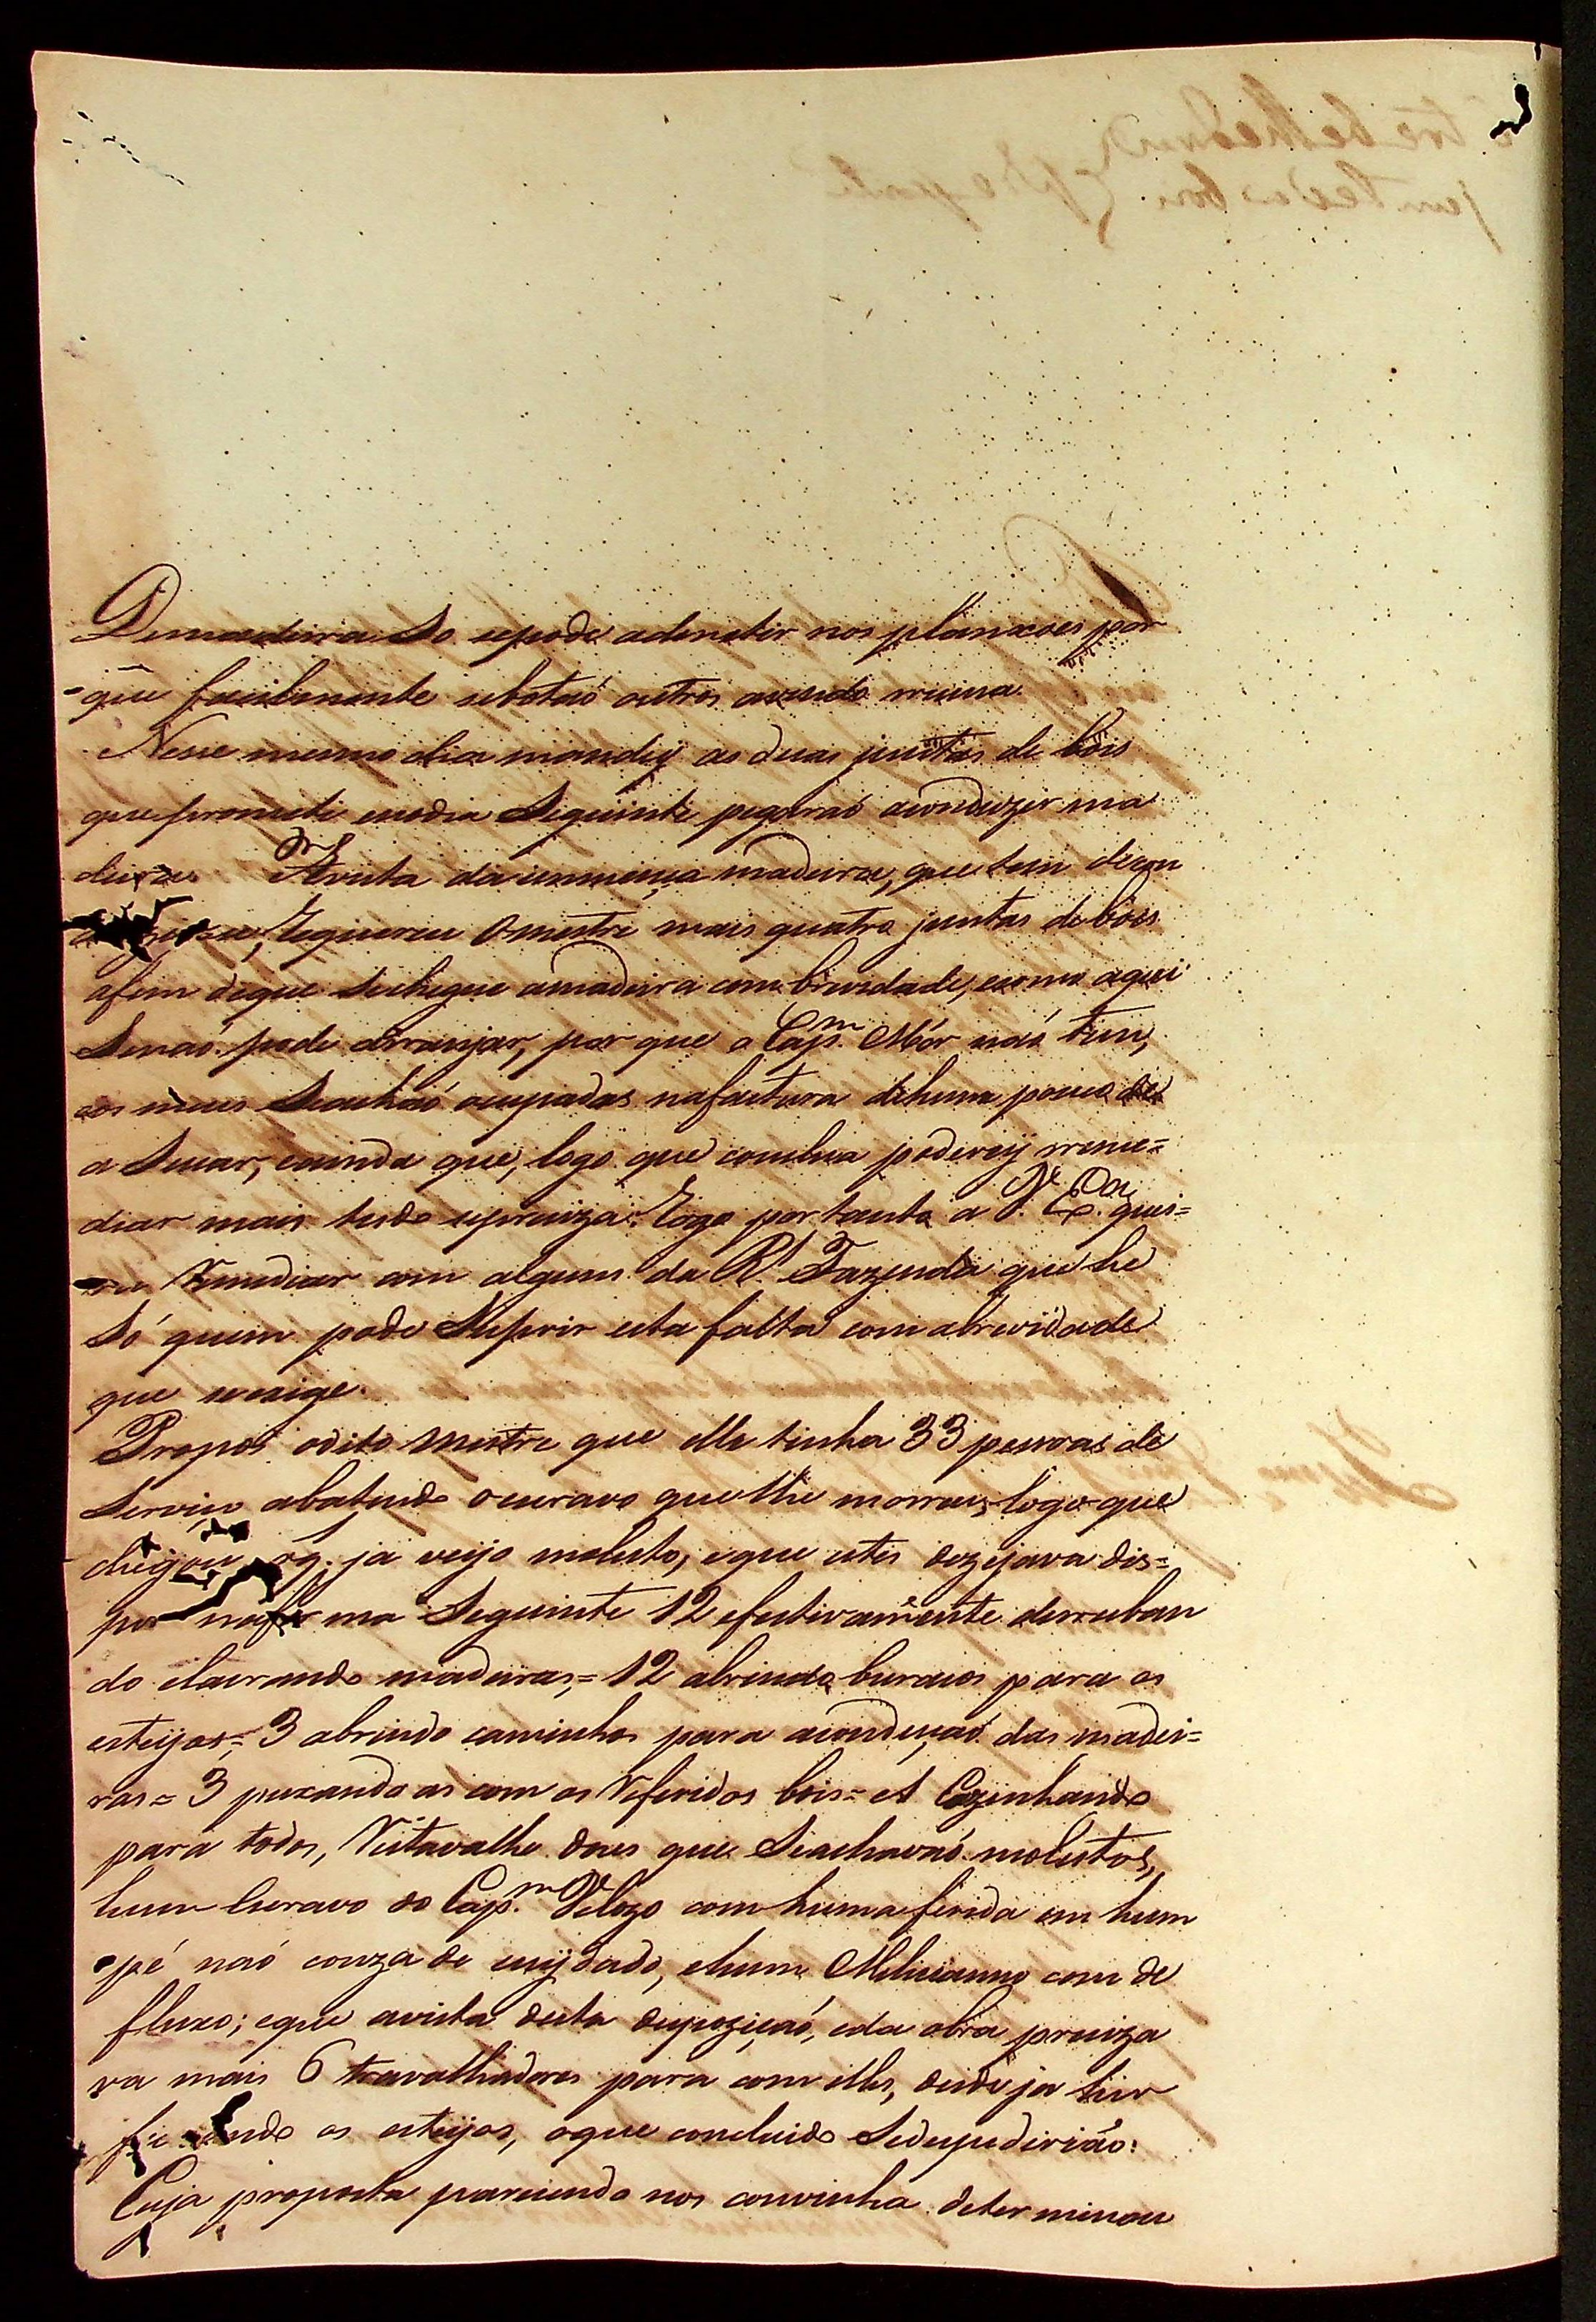 Demadeira So sepodeademetir nos planxoes por
que facilmente sebotaõ outros avendo rruina.
Nesse mesmo dia mandey as duas juntas de bois
que prometi enodia Seguinte pegaraõ aconduzir ma
deiras Avista daimmença madeira, que tem decon
Requereu Omestre mais quatro juntas debois
afim deque Sechegue amadeira com brevidade, ecomo aqui
Senaõ pode arranjar, por que o Cap.m Mór naõ tem,
eos meus Seachaõ ocupados nafactura dehum pouco de
a Sucar, eainda que, logo que conclua poderey rreme=
diar mais tudo epreciza: Rogo portanto a V. Ex.a quei=
ra Remediar com alguns da R.l Fazenda que he
Só quem pode Suprir esta falta com abrevidade
que seexige.
Propos odito Mestre que elle tinha 33 pessoas de
Serviço abatendo oescravo que lhe morreu, logo que
chegou, oq. ja veijo molesto; eque estes dezejava dis=
por naforma Seguinte 12 efectivamente derruban
do elavrando madeiras,= 12 abrindo buracos para os
esteijos=, 3 abrindo caminhos para aconduçaõ das madei=
ras= 3 puxando as com os Referidos bois= e1 Cozinhando
para todos, Restavalhe does que Seachavaõ molestos,
hum Escravo do Cap.m Velozo com huma ferida em hum
pé naõ couza de cuydado, ehum Milicianno com de
fluxo; eque avista desta dispoziçaõ, eda obra preciza
va mais 6 travalhadores para com elles, desde ja hir
fincando os esteijos, oque concluido Sedespediriaõ:
Cuja proposta parecendo nos convinha determinou